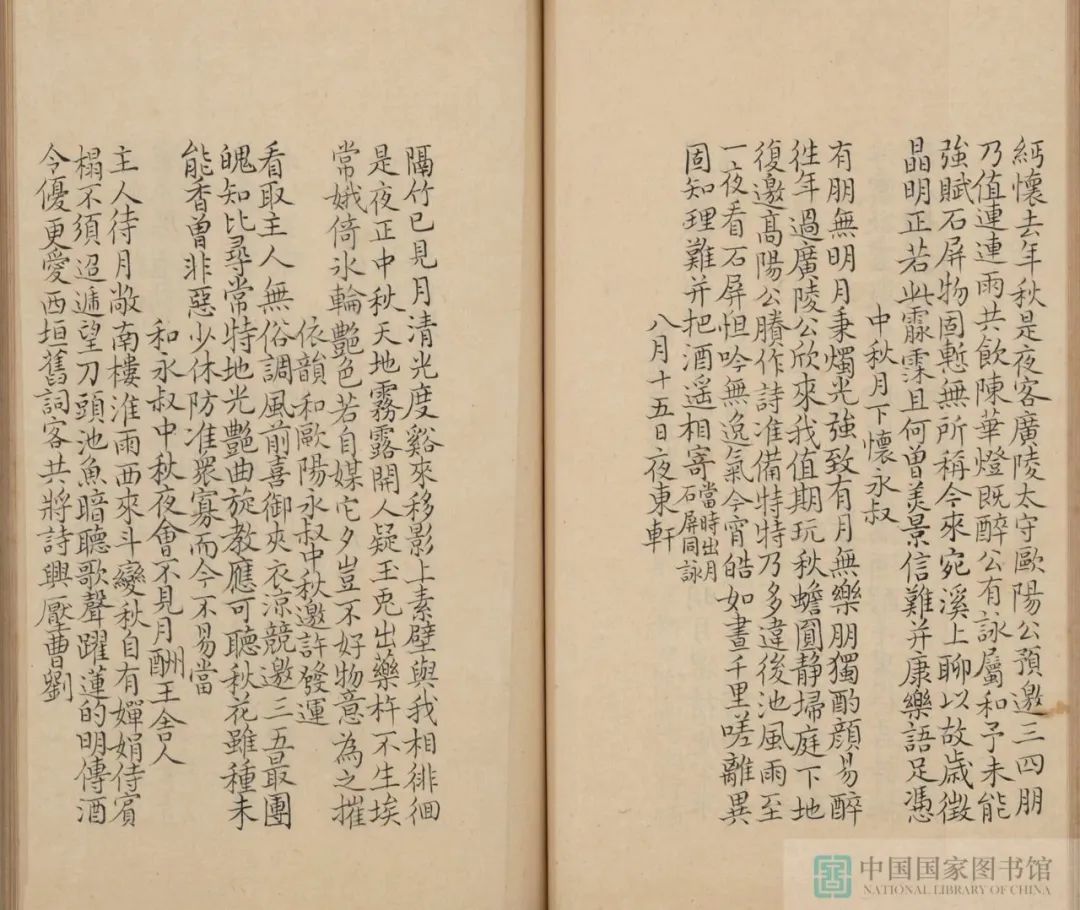 緬懷去年秋是夜客廣陵太守歐陽公預邀三四朋
乃值連連雨共飲陳華燈既醉公有詠屬和予未能
強賦石屏物固慙無所稱今來宛溪上聊以故歲徵
晶明正若此霢霂且何曾美景信難并康樂語足憑
中秋月下懷永叔
有朋無明月秉燭光強致有月無樂朋獨酌顏易醉
徃年過廣陵公欣來我值期玩秋蟾圓静掃庭下地
復邀高陽公賸作詩准備特特乃多違後池風雨至
一夜看石屏怛吟無逸氣今宵皓如晝千里嗟離異
固知理難并把酒遥相寄當時出月石屏同詠
八月十五日夜東軒
隔竹已見月清光度谿來移影上素壁與我相徘徊
是夜正中秋天地霧露開人疑玉兎出藥杵不生埃
常娥倚氷輪艷色若自媒它夕豈不好物意為之摧
依韻和歐陽永叔中秋邀許發運
看取主人無俗調風前喜御夾衣涼競邀三五最團
魄知比尋常特地光艷曲旋教應可聽秋花雖種未
能香曽非惡少休防准衆寡而今不易當
和永叔中秋夜會不見月酬王舍人
主人待月敞南樓淮雨西來斗變秋自有嬋娟侍賓
榻不須迢遞望刀頭池魚暗聽歌聲躍蓮的明傳酒
令優更愛西垣舊詞客共將詩興壓曹劉
中国国家图书馆
NATIONAL LIBRARY OF CHINA